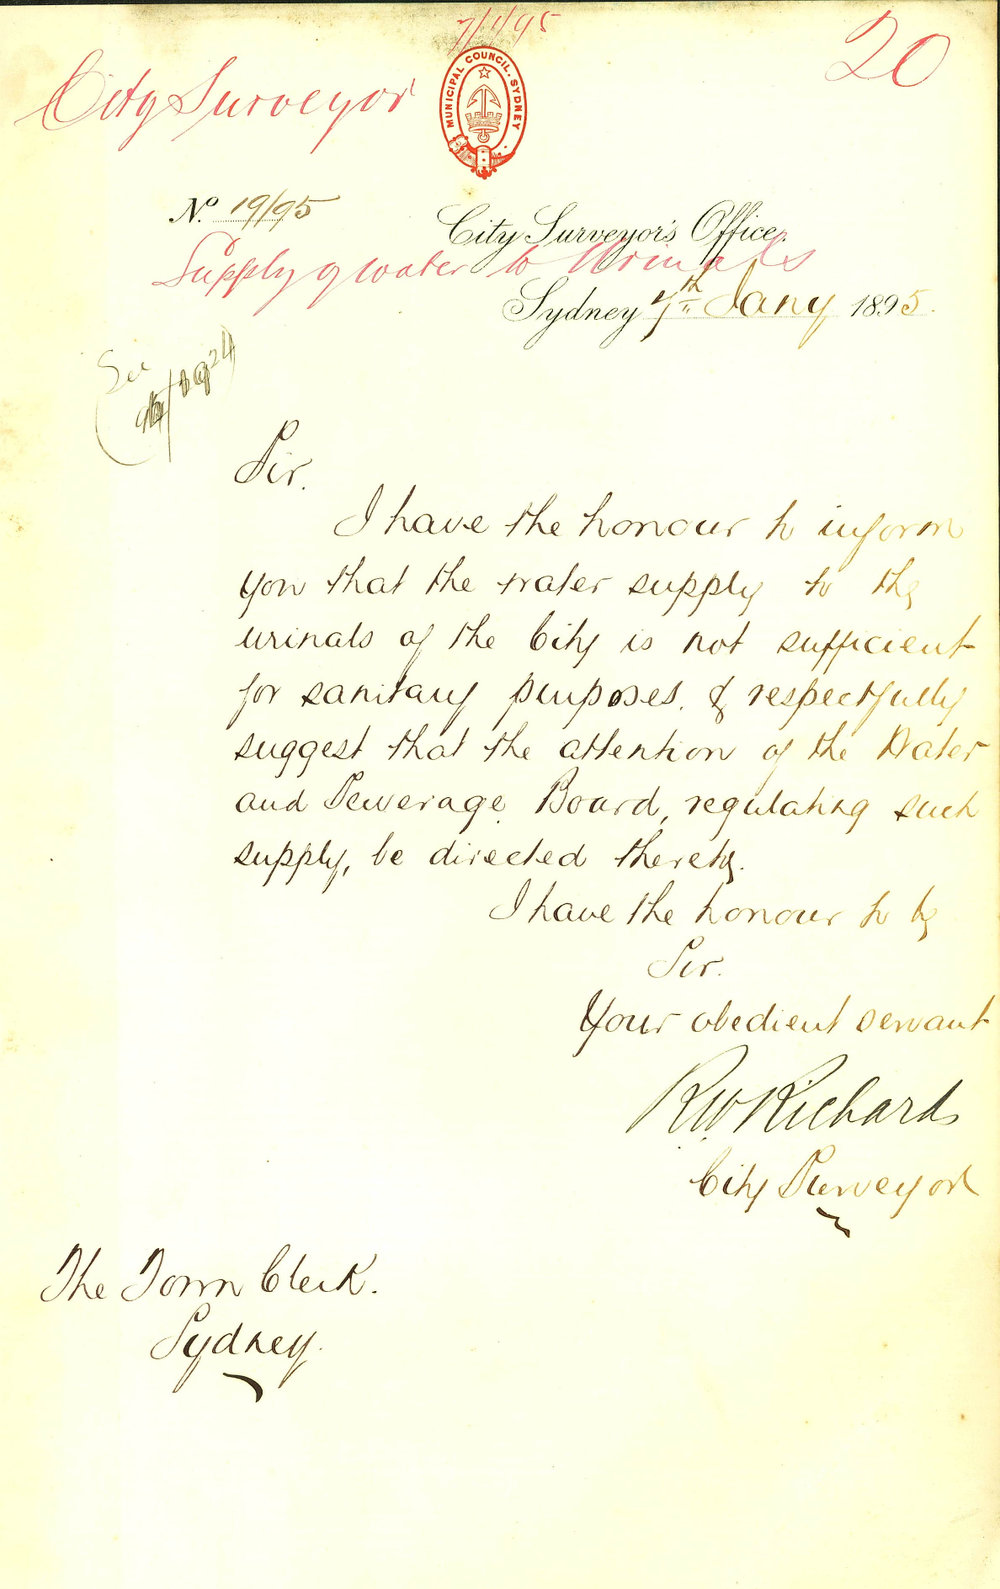 7/1/95
20
City Surveyor
MUNICIPAL COUNCIL. SYDNEY
No. 19/95
City Surveyor's Office,
Supply of water to Urinals
Sydney 7th Jany 1895.
See
Sir.
I have the honour to inform
you that the water supply to the
urinals of the City is not sufficient
for sanitary purposes. & respectfully
suggest that the attention of the Water
and Sewerage Board, regulating such
supply, be directed thereto.
I have the honour to be
Sir.
Your obedient servant
R.W. Richards
City Surveyor
The Town Clerk.
Sydney.